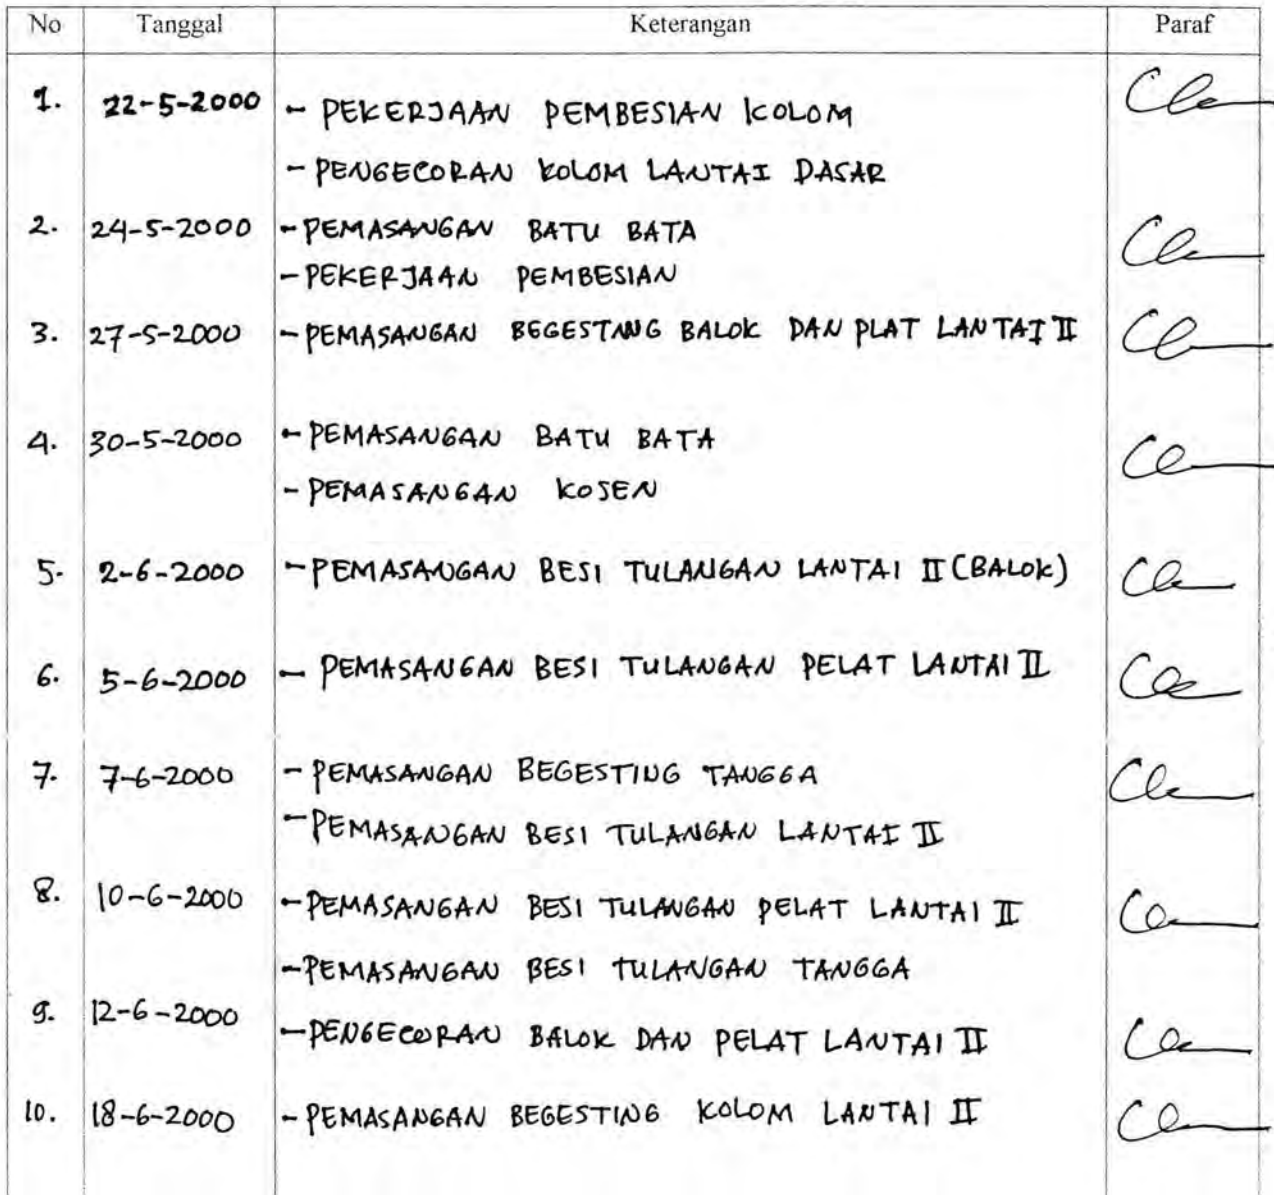 No Tanggal Keterangan Paraf
1. 22-5-2000 - PEKERJAAN PEMBESIAN KOLOM
- PENGECORAN KOLOM LANTAI DASAR
2. 24-5-2000 - PEMASANGAN BATU BATA
- PEKERJAAN PEMBESIAN
3. 27-5-2000 - PEMASANGAN BEGESTING BALOK DAN PLAT LANTAI II
4. 30-5-2000 - PEMASANGAN BATU BATA
- PEMASANGAN KOSEN
5. 2-6-2000 - PEMASANGAN BESI TULANGAN LANTAI II (BALOK)
6. 5-6-2000 - PEMASANGAN BESI TULANGAN PELAT LANTAI II
7. 7-6-2000 - PEMASANGAN BEGESTING TANGGA
- PEMASANGAN BESI TULANGAN LANTAI II
8. 10-6-2000 - PEMASANGAN BESI TULANGAN PELAT LANTAI II
- PEMASANGAN BESI TULANGAN TANGGA
9. 12-6-2000 - PENGECORAN BALOK DAN PELAT LANTAI II
10. 18-6-2000 - PEMASANGAN BEGESTING KOLOM LANTAI II